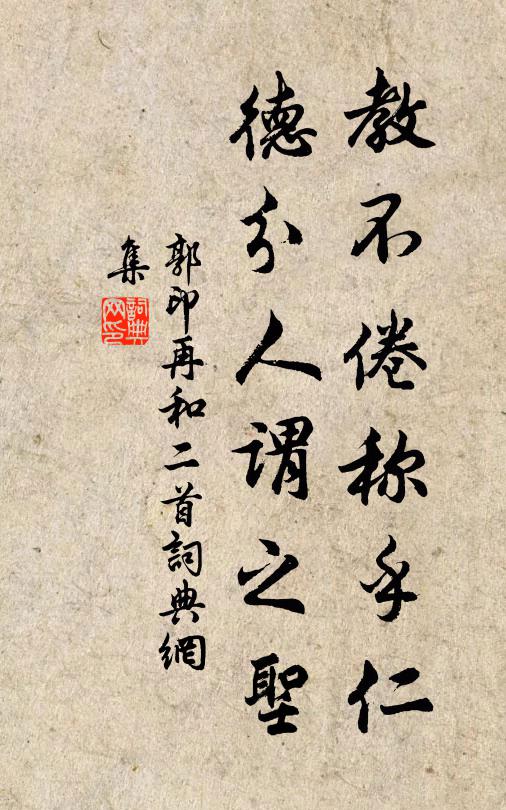 教不倦称乎仁
德分人謂之聖
郭印再和二首詞典網
集
詞典网印